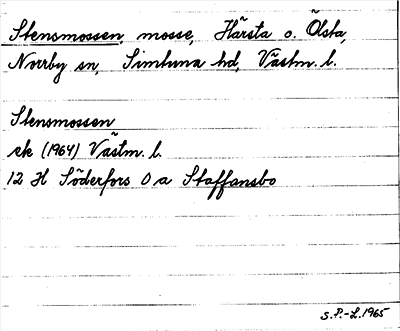 Stensmossen, mosse, Härsta o. Ölsta,
Norrby sn, Simtuna hd, Västm. l.
Stensmossen
ek (1964) Västm. l.
12 H Söderfors 0 a Staffansbo
S.P.-L. 1965